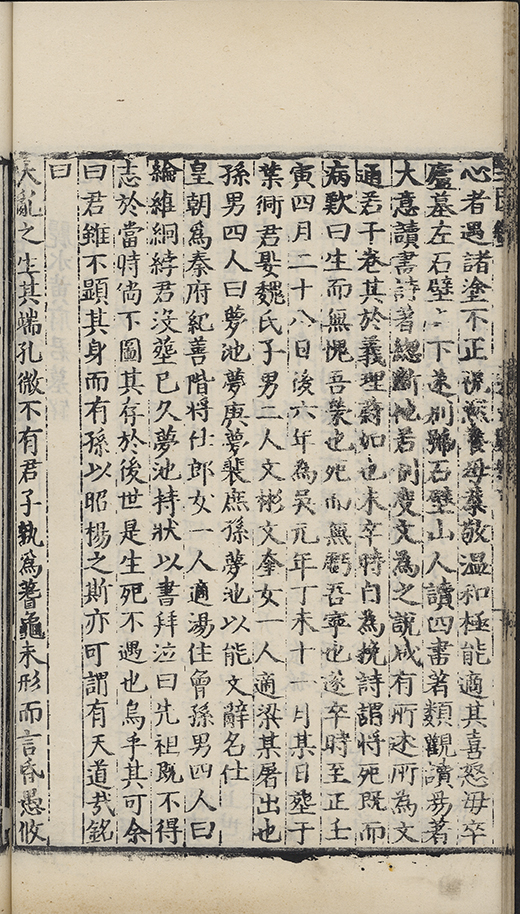 心者遇諸塗不正視燕養母羣敬溫和極能適其喜怒母卒
廬墓左石壁山下遂別號石壁山人讀四書著類觀讀易著
大意讀書詩著總斷他若制度文為之說咸有所述所為文
通若干卷其於義理蔚如也未卒時自為挽詩謂將死既而
病歎曰生而無愧吾榮也死而無虧吾寧也遂卒時至正壬
寅四月二十八日後六年為吳元年丁未十一月某日塟于
葉衕君娶魏氏子男二人文彬文奎女一人適梁某屠出也
孫男四人曰夢池夢庚夢裴庶孫夢池以能文辭名仕
皇朝為秦府紀善階將仕郎女一人適湯住曾孫男四人曰
綸維絅綍君沒塟已久夢池持狀以書拜泣曰先祖既不得
志於當時尚不圖其存於後世是生死不遇也烏乎其可余
曰君雖不顯其身而有孫以昭楊之斯亦可謂有天道㢤銘
曰
大亂之生其端孔微不有君子孰為蓍龜未形而言昏愚攸